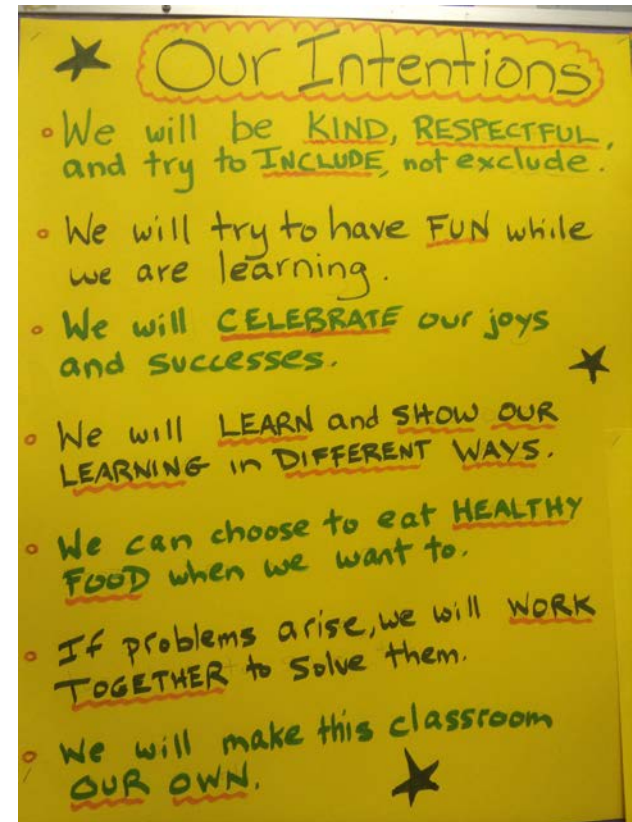 Our Intentions
We will be KIND, RESPECTFUL,
and try to INCLUDE, not exclude.
We will try to have FUN while
we are learning.
We will CELEBRATE our joys
and successes.
We will LEARN and SHOW OUR
LEARNING in DIFFERENT WAYS.
We can choose to eat HEALTHY
FOOD when we want to.
If problems arise, we will WORK
TOGETHER to solve them.
We will make this classroom
OUR OWN.